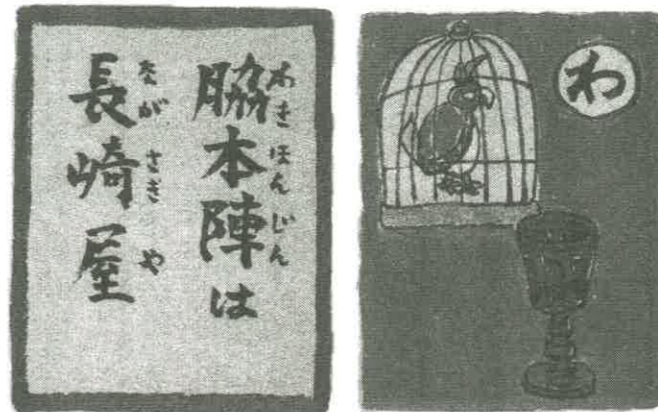 脇本陣は
わきほんじん
長崎屋
ながさきや
わ